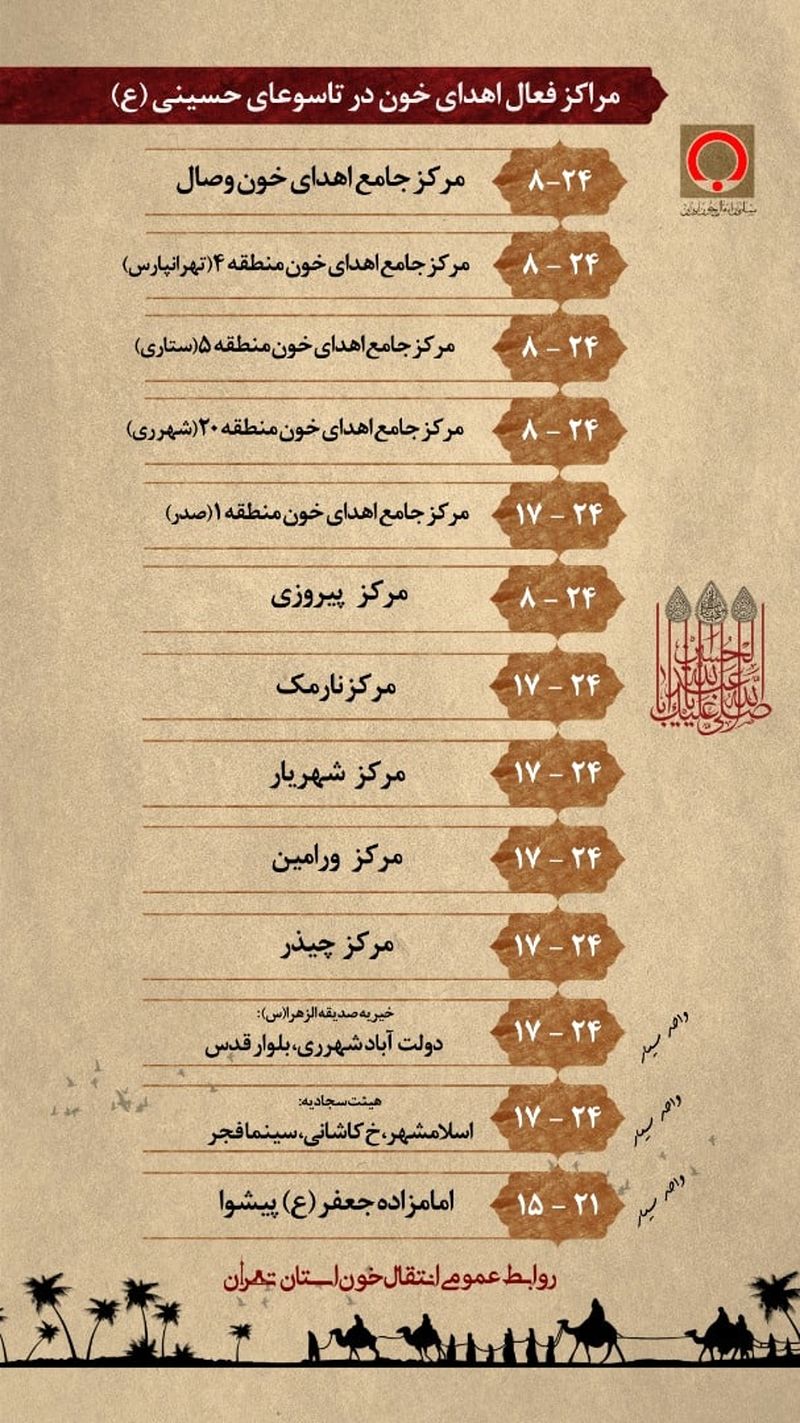 مراکز فعال اهدای خون در تاسوعای حسینی (ع)
۸-۲۴ مرکز جامع اهدای خون وصال
۸ - ۲۴ مرکز جامع اهدای خون منطقه ۴(تهرانپارس)
۸ - ۲۴ مرکز جامع اهدای خون منطقه ۵(ستاری)
۸ - ۲۴ مرکز جامع اهدای خون منطقه ۲۰(شهرری)
۱۷ - ۲۴ مرکز جامع اهدای خون منطقه ۱(صدر)
۸ - ۲۴ مرکز پیروزی
۱۷ - ۲۴ مرکز نارمک
۱۷ - ۲۴ مرکز شهریار
۱۷ - ۲۴ مرکز ورامین
۱۷ - ۲۴ مرکز چیذر
خیریه صدیقه الزهرا(س):
واحد سیار ۱۷ - ۲۴ دولت آباد شهرری، بلوار قدس
هیئت سجادیه:
واحد سیار ۱۷ - ۲۴ اسلامشهر، خ کاشانی، سینما فجر
واحد سیار ۱۵ - ۲۱ امامزاده جعفر (ع) پیشوا
روابط عمومی انتقال خون استان تهران
صلی الله علیک یا اباعبدالله الحسین